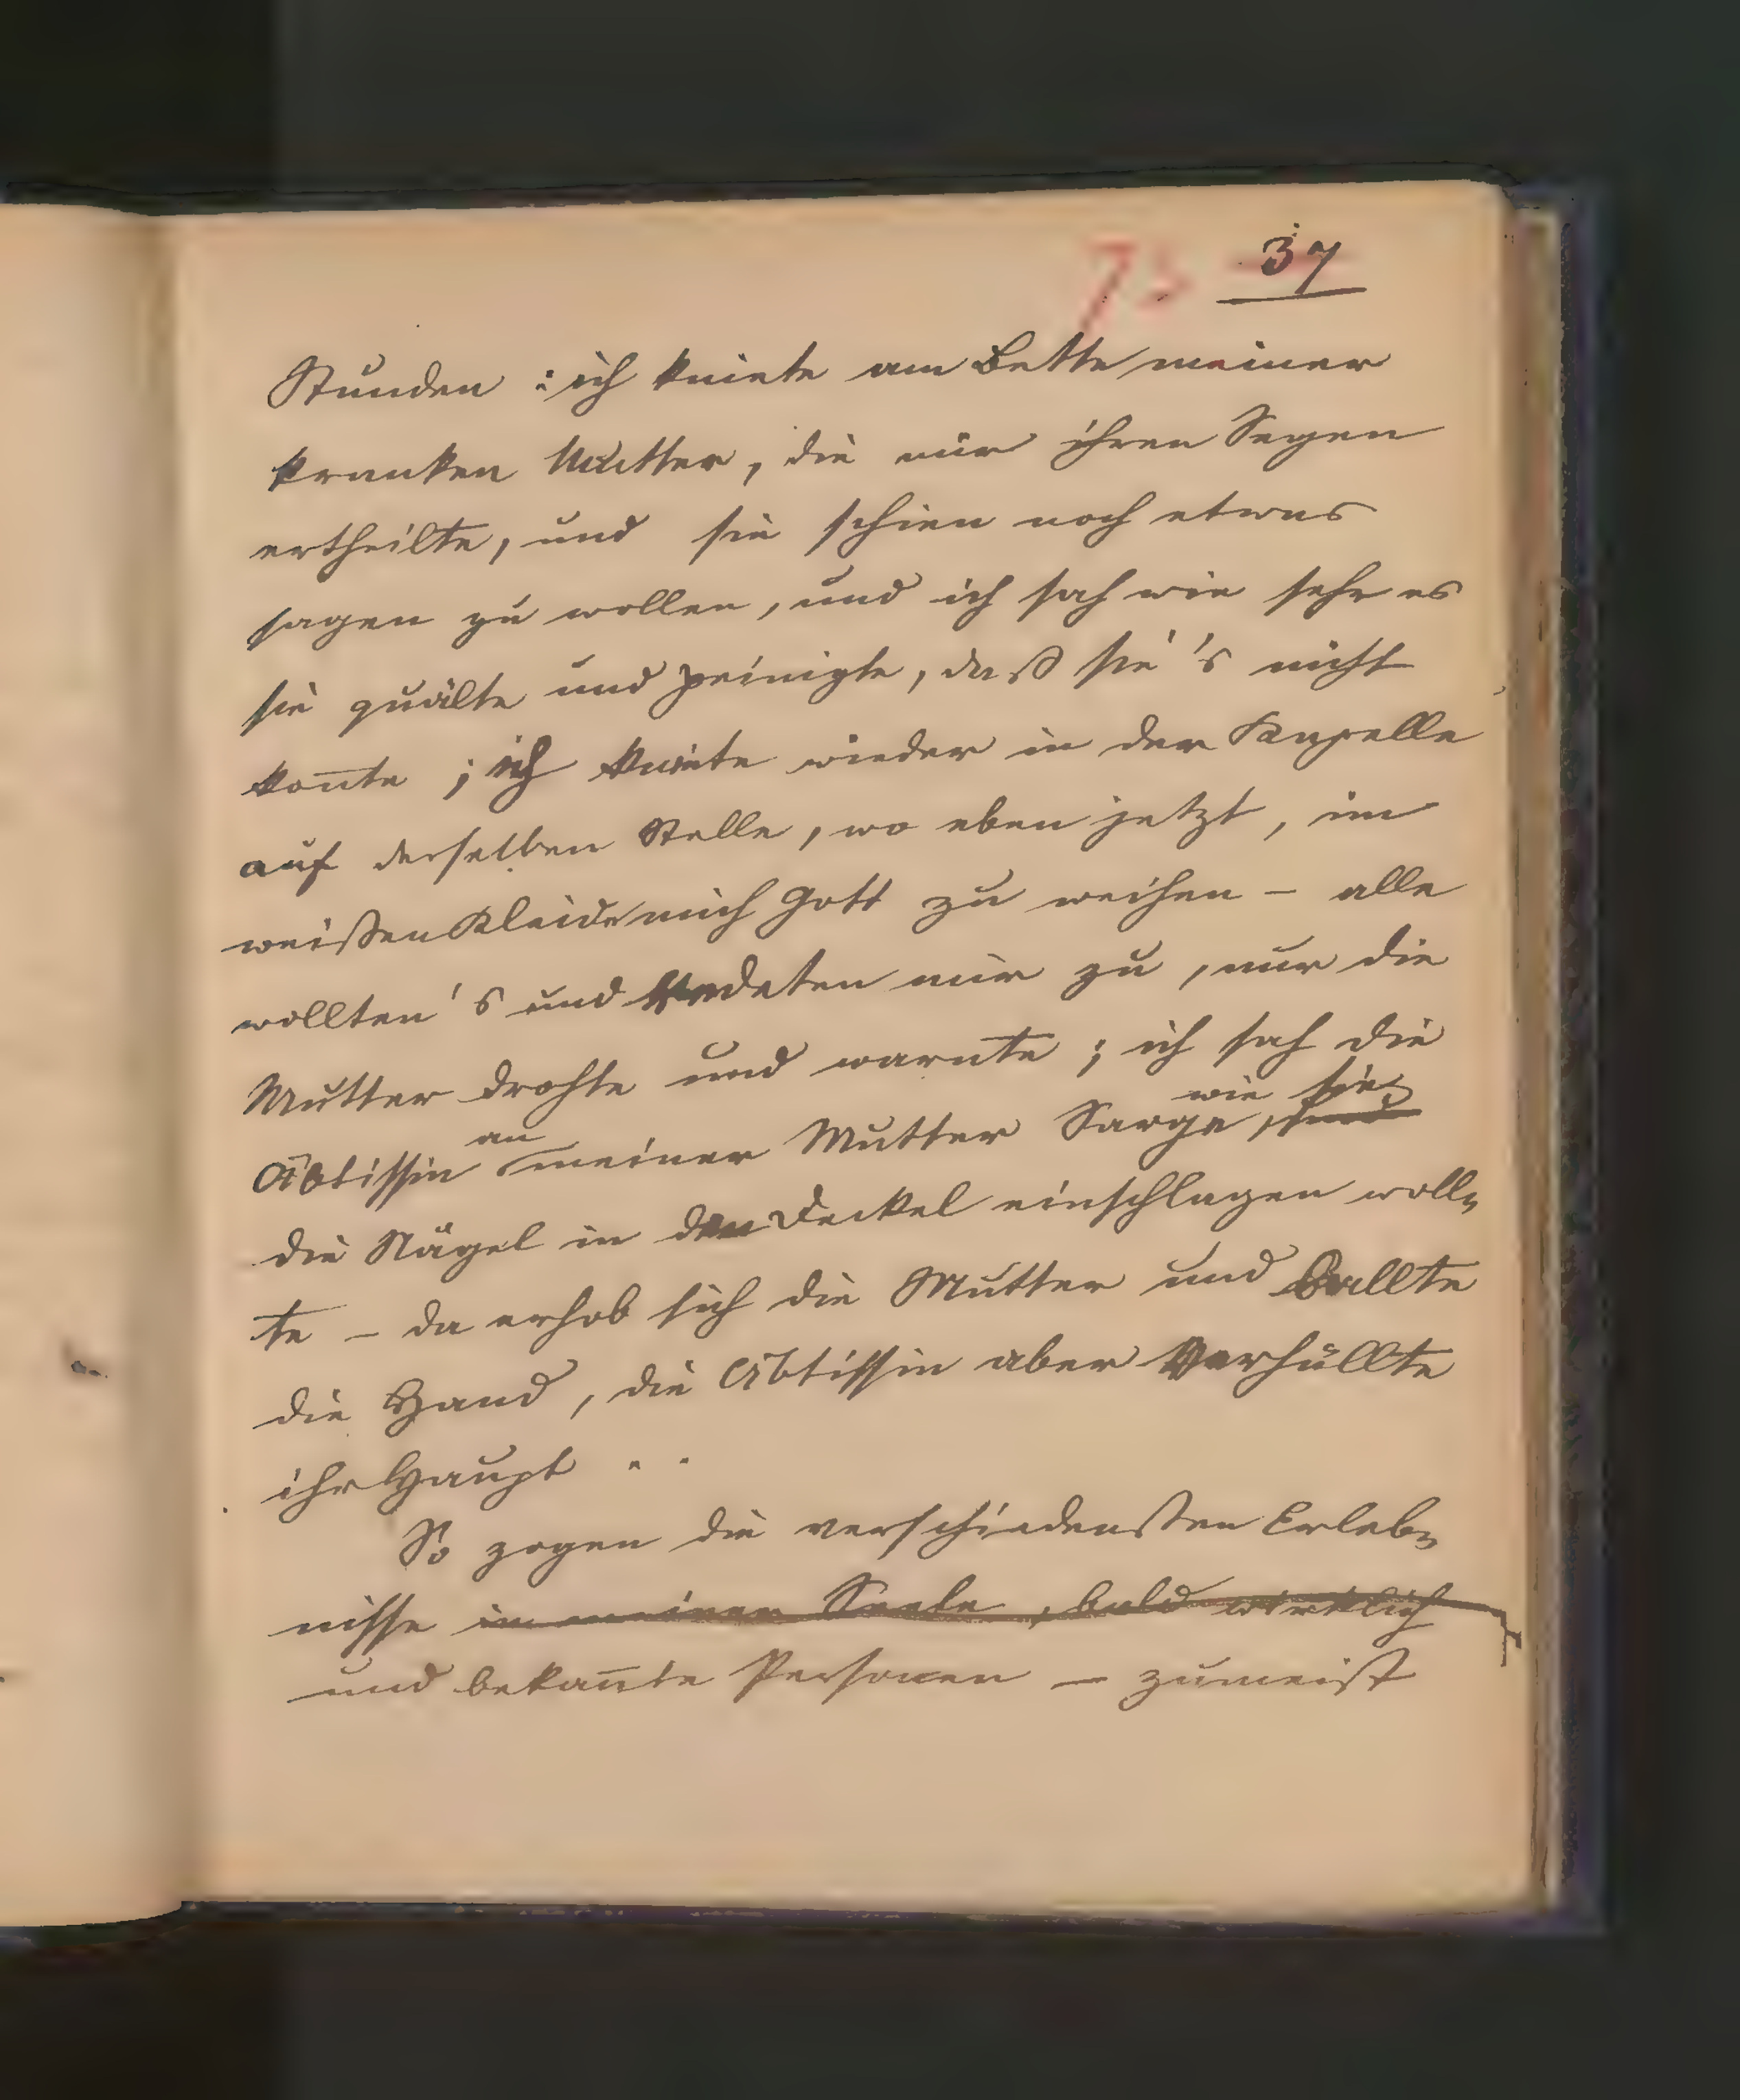 73 37
Stunden : ich kniete am Bette meiner
kranken Mutter, die mir ihren Segen
ertheilte, und sie schien noch etwas
sagen zu wollen, und ich sah wie sehr es
sie quälte und peinigte, daß sie's nicht
kon̄te ; ich kniete wieder in der Kapelle
auf derselben Stelle, wo eben jetzt, im
weißen Kleide mich Gott zu weihen – alle
wollten's und redeten mir zu, nur die
Mutter drohte und warnte ; ich sah die
wie sie
an
Äbtissin meiner Mutter Sarge, und
die Nägel in den Deckel einschlagen woll-
te – da erhob sich die Mutter und ballte
die Hand, die Äbtissin aber verhüllte
ihr Haupt . .
So zogen die verschiedensten Erleb-
nisse in meiner Seele, bald wirklich
und bekan̄te Personen – zumeist